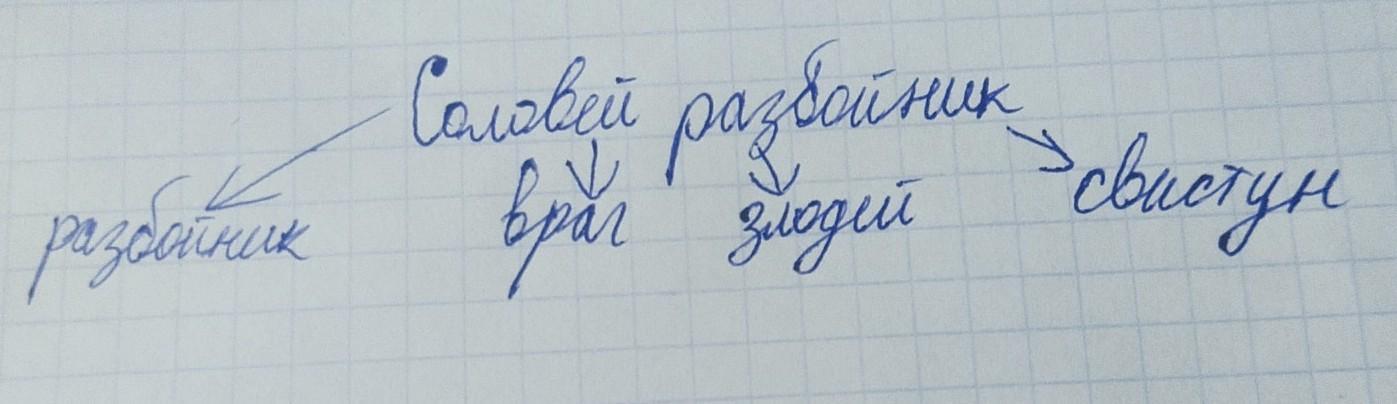 Соловей разбойник
разбойник враг злодей свистун